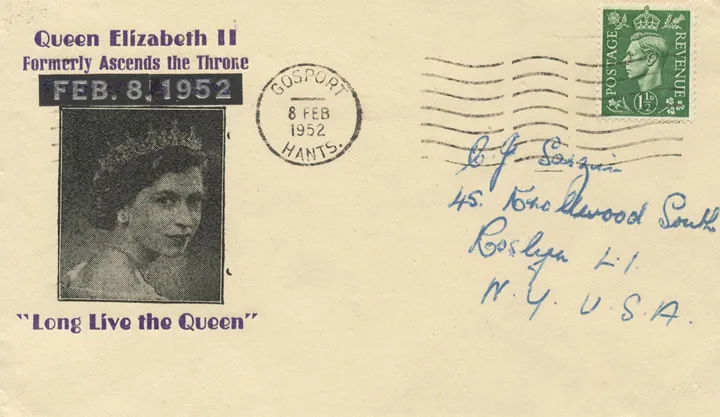 Queen Elizabeth II
Formerly Ascends the Throne
FEB. 8, 1952
"Long Live the Queen"
GOSPORT
8 FEB
1952
HANTS.
POSTAGE
REVENUE
1½D
45. Knollwood South
Roslyn L.I.
N.Y. U.S.A.